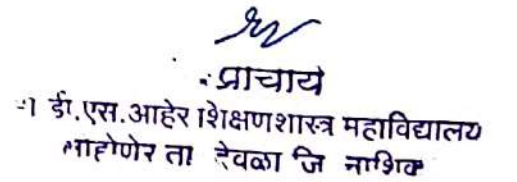 प्राचार्य
डी.एस.आहेर शिक्षणशास्त्र महाविद्यालय
ता देवळा जि नाशिक